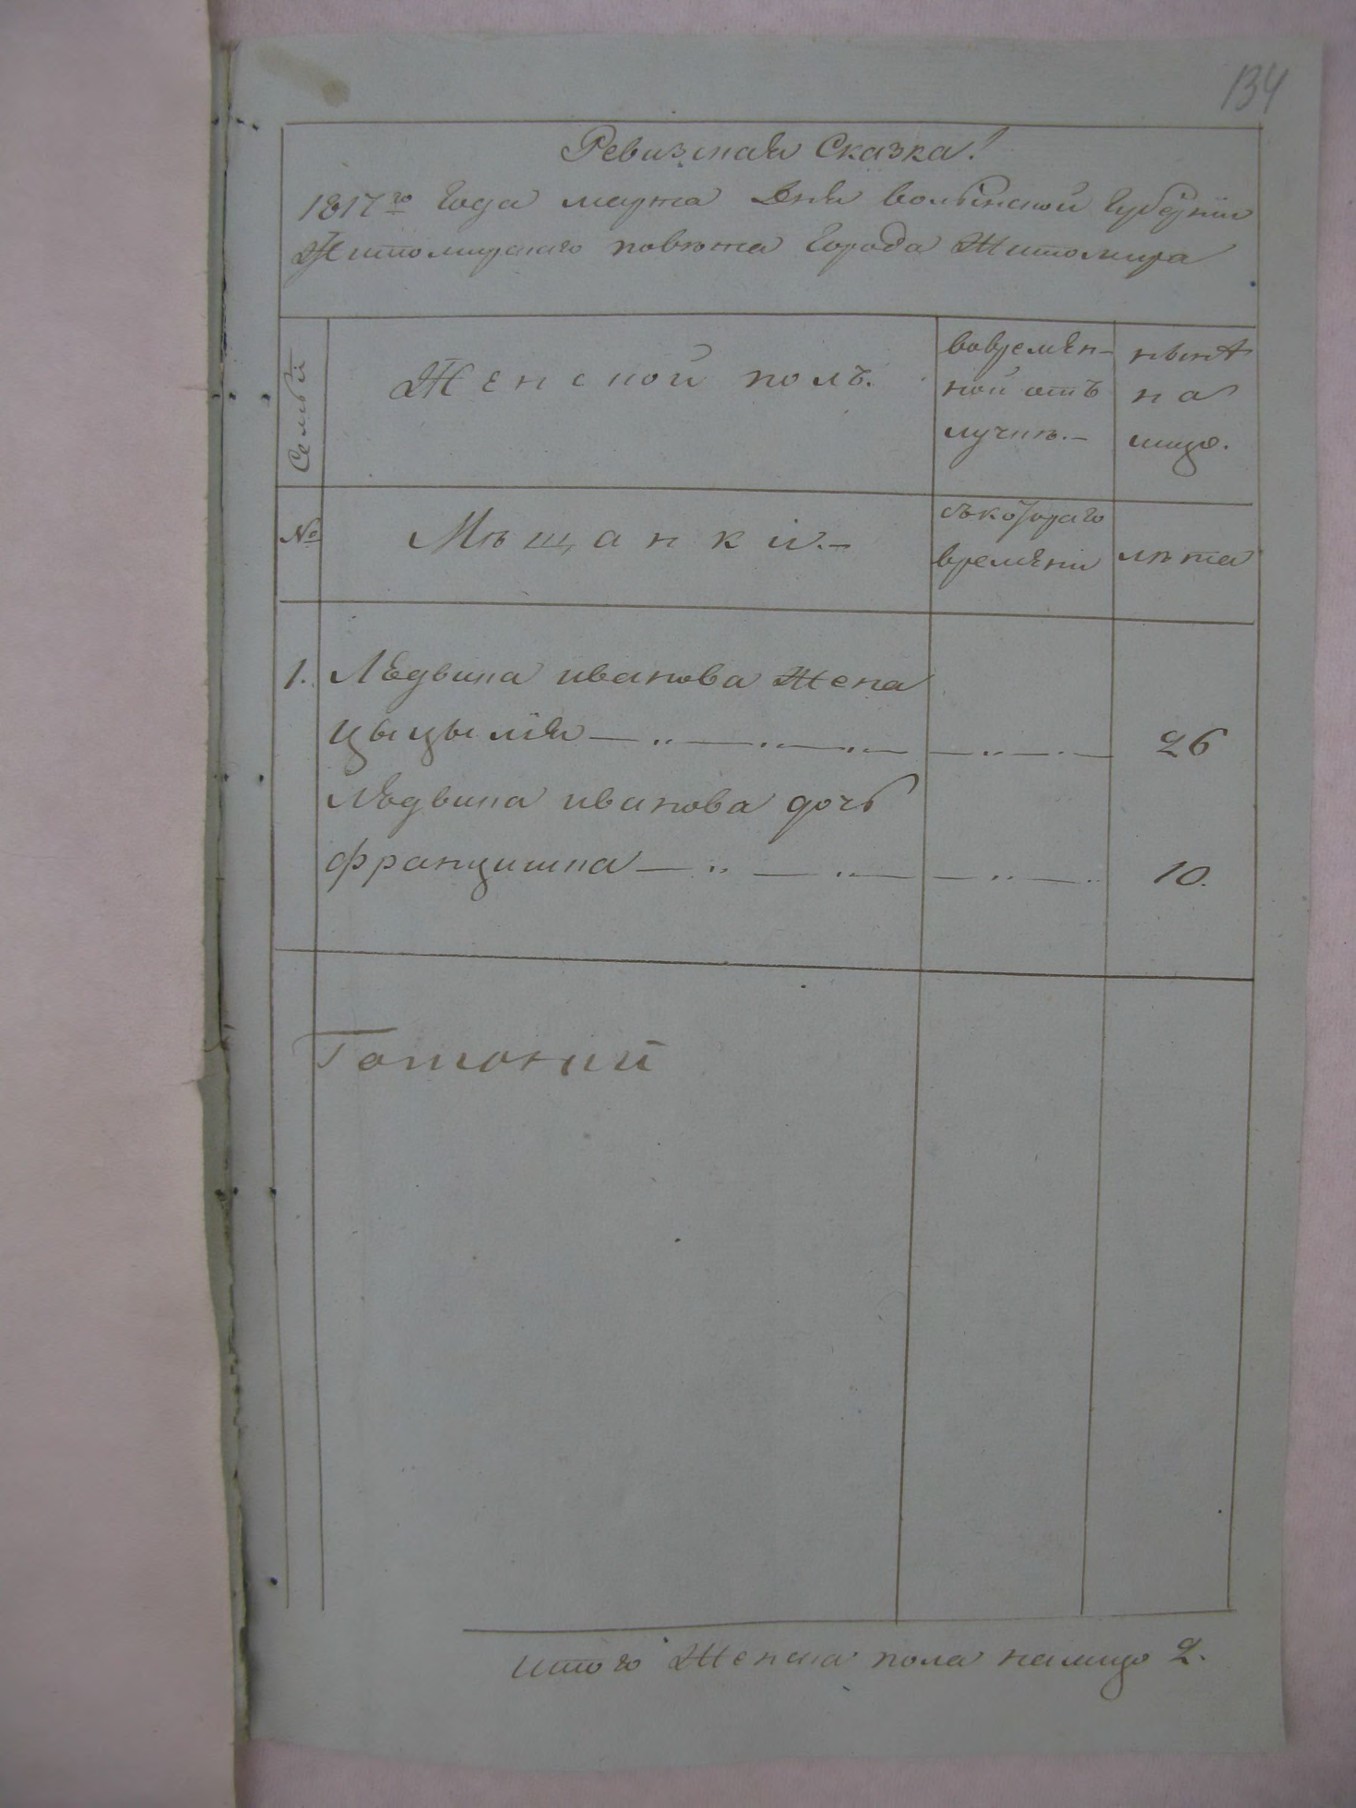 134
Ревизская Сказка!
1817го Года марта Дня волынской Губернiи
Житомирскаго повѣта Города Житомира
Семьи
Женской полъ.
вовремян-
ной отъ
лучкѣ.-
нынѣ
на
лицо.
№
Мѣщанки.-
съкотораго
времяни
лѣта
1. Лѣдвина иванова Жена
цыцылiя 26
Лѣдвина иванова дочь
францишка 10.
итого Женска пола налицо 2.